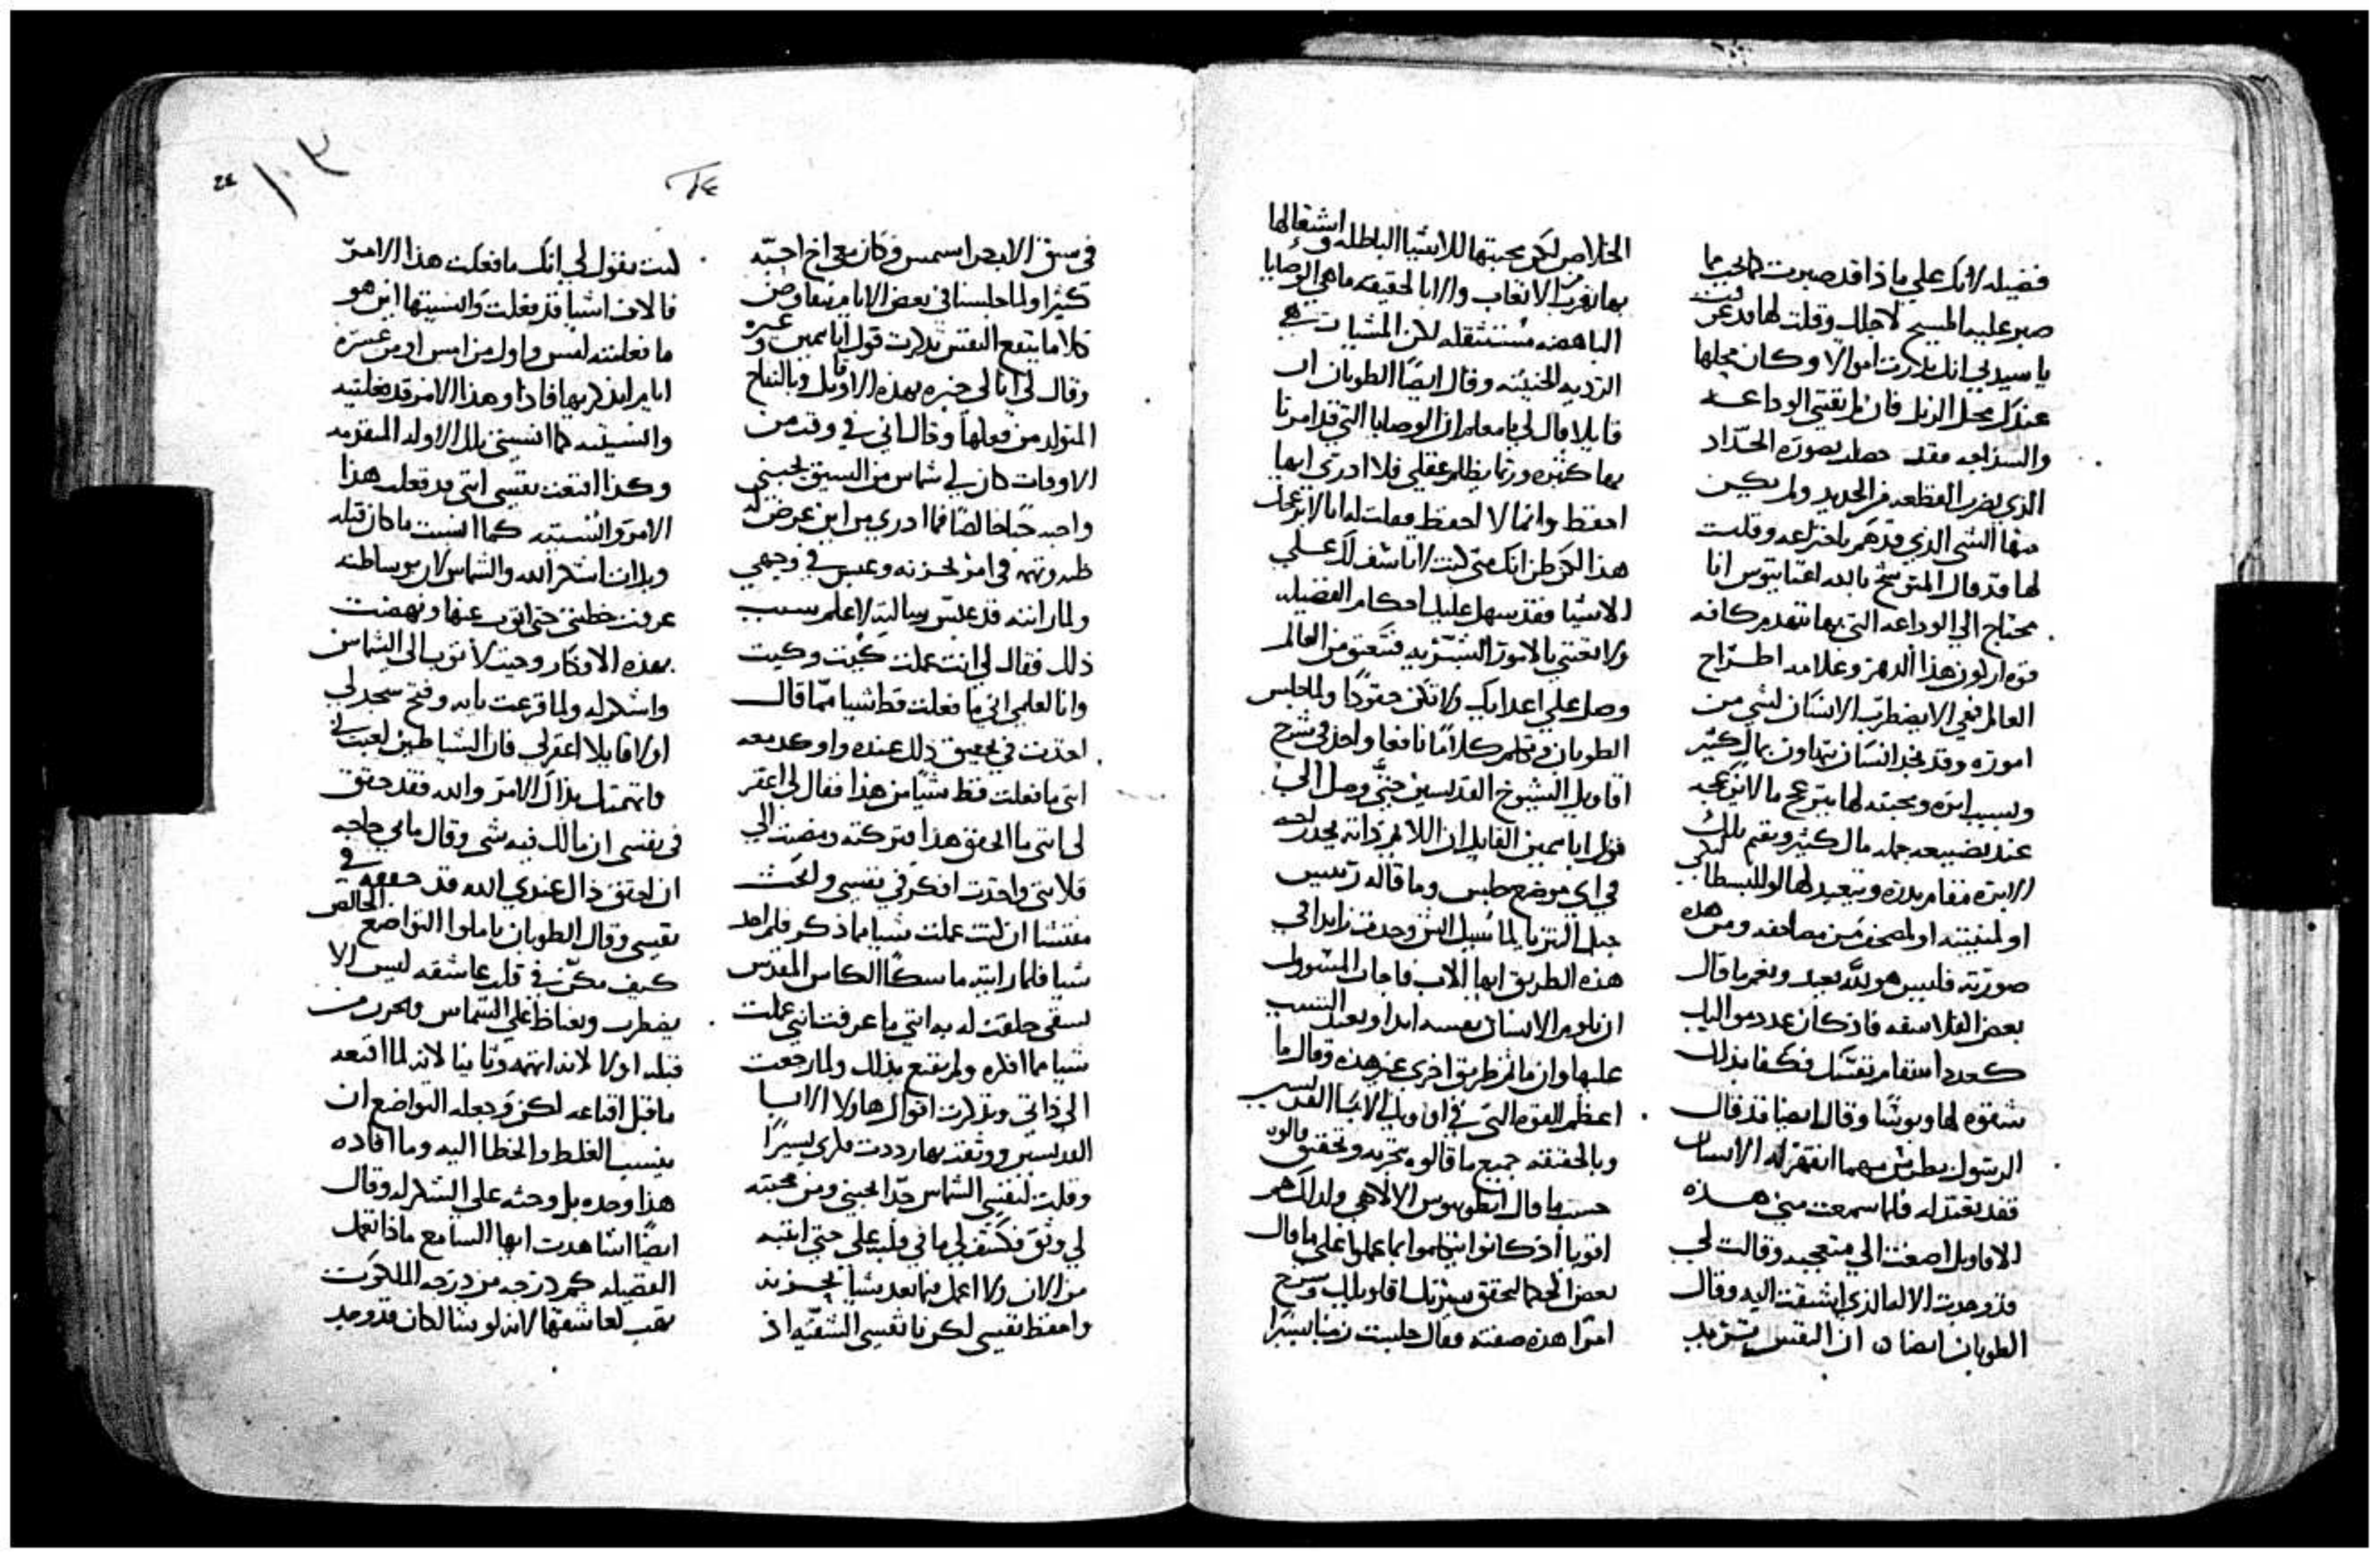 فضيله لانك علي ماذا قد صبرت كما يجب مما
صبر عليه المسيح لاجلك وقلت لها قد عرفت
يا سيدتي انك تذكرت اموالا وكان محلها
عندك محل الزبل فان طريقتي الوداعه
والسذاجه فقد حصلت بصورة الحدّاد
الذي يضرب القطعه من الحديد ولم يكن
منها الشي الذي قد هم باختراعه وقلت
لها قد قال المتوشح بالله اغناتيوس انا
محتاج الي الوداعه التي بها تنهدم كافه
قوه اركون هذا الدهر وعلامه اطراح
العالم هي الا يضطرب الانسان لشي من
اموره وقد نجد انسان يتهاون بمال كثير
وبسبب ابره ومحبته لها ينزعج ما لا ينزعجه
عند تضييعه جمله مال كثير ويقيم تلك
الابره مقام بدره
او لمنيته او لمصحف من مصاحفه ومن هذه
صورته فليس هو لله بعبد ونعم ما قال
بعض الفلاسفه فاذ كان عدد مواليب
كعدد اسقام نفسك فكفا بذلك
شقوه لها وبوسًا وقال ايضا قد قال
الرسول بطرس مهما انقهر له الانسان
فقد تعبد له فلما سمعت مني هذه
الاقاويل اصغت الي متعجبه وقالت لي
قد وجدت الاله الذي اشتقت اليه وقال
الطوبان ايضا ان النفس تريد
الخلاص لكن محبتها للاشيا الباطله واشتغالها
بها تهرب من الاتعاب والا بالحقيقه ما هي الوصايا
الباهضه مستثقله لكن المشيات هي
الرديه الخبيثه وقال ايضًا الطوبان ان
قايلا قال لي يا معلم ان الوصايا التي قد امرنا
بها كثيره وربما يظلم عقلي فلا ادري ايها
احفظ وايما لا احفظ فقلت له انا لا يزعجك
هذا لكن ظن انك متي كنت لا تاسف لك علي
الاشيا فقد سهل عليك احكام الفضيله
ولا تعتني بالامور البشريه فتعتق من العالم
وصل علي اعدايك ولا تكن حقودًا ولما جلس
الطوبان وتكلم كلامًا نافعا واخذ في شرح
اقاويل الشيوخ القديسين حتي وصل الي
قول ابا بمين القايل ان اللايم ذاته يجد راحه
في اي موضع جلس وما قاله رييس
جبل النتريا لما سيل ايش وجدت زايدا في
هذه الطريق ايها الاب فاجاب المسوول
ان يلوم الانسان نفسه ابدا ويعيد السبب
عليها وان ما ثم طريق اخري غير هذه وقال ما
اعظم القوه التي في اقاويل الابا القديسين
وبالحقيقه جميع ما قالوه بتجربه وتحقيق قالوه
حسب ما قال انطونيوس الالاهي ولذلك هم
اقويا اذ كانوا يتكلموا بما عملوا علي ما قال
بعض الحكما لتحقق سيرتك اقاويلك وشرح
امرًا هذه صفته فقال جلست زمنا يسيرًا
٢٤
في سيق الاب جراسيمس وكان معي اخ احبّه
كثيرًا ولما جلسنا في بعض الايام نتفاوض
كلاما ينفع النفس تذكرت قول ابا بمين وغيره
وقال لي انا لي خبره بهذه الاقاويل وبالنياح
المتولد من فعلها وقال اني في وقت من
الاوقات كان لي شماس من السيق يحبني
واحبه حبًا خالصًا فما ادري من اين عرض له
ظنه وتهمه في امر لحزنه وعبس في وجهي
ولما رايته قد عبس سالته لاعلم سبب
ذلك فقال لي انت عملت كيت وكيت
وانا لعلمي اني ما فعلت قط شيا مما قال
اخذت في تحقيق ذلك عنده واوكد معه
اني ما فعلت قط شيًا من هذا فقال لي اغفر
لي انني ما اتحقق هذا فتركته ومضيت الي
قلايتي واخذت افكر في نفسي وابحث
مفتشا ان كنت عملت شيا مما ذكر فلم اجد
شيا فلما رايته ماسكًا الكاس المقدس
يسقي حلفت له به انني ما عرفت انني عملت
شيا مما افكره ولم يقنع بذلك ولما رجعت
الي ذاتي وتذكرت اقوال هاولا الابا
القديسين ووثقت بها رددت فكري يسيرًا
وقلت لنفسي الشماس جدًا يحبني ومن محبته
لي وثق وكشف لي ما في قلبه علي حتي انتبه
من الان ولا اعمل فيما بعد شيا يحزنه
واحفظ نفسي لكن يا نفسي الشقيّه اذ
٢٤ ١٠٣
كنت تقولي لي انك ما فعلت هذا الامر
فالاف اشيا قد فعلت وانسيتها اين هو
ما فعلته امس واول من امس او من عشره
ايام اتذكريها فاذًا وهذا الامر قد فعلتيه
وانسيتيه كما انسيتي تلك الاوله المتقدمه
وكذا اقنعت نفسي انني قد فعلت هذا
الامر وانسيته كما انسيت ما كان قبله
وبدات اشكر الله والشماس لان بوساطته
عرفت خطيتي حتي اتوب عنها ونهضت
بهذه الافكار وجيت لاتوب الي الشماس
واشكره ولما قرعت بابه وفتح سجد لي
اولا قايلا اغفر لي فان الشياطين لعبت بي
واتهمتك بذاك الامر والله فقد حقق
في نفسي ان ما لك فيه شي وقال ما بي حاجه
ان احقق ذاك عندي الله قد حققه في
نفسي وقال الطوبان تاملوا التواضع الخالص
كيف مكن في قلب عاشقه ليس الا
يضطرب ويغتاظ علي الشماس ويحزن من
قبله اولا لانه اتهمه وثانيا لانه لما اقنعه
ما قبل اقناعه لكن وجعله التواضع ان
ينسب الغلط والخطا اليه وما افاده
هذا وحده بل وحثه علي الشكر له وقال
ايضًا اشاهدت ايها السامع ماذا تعمل
الفضيله كم درجه من درجه الملكوت
تهب لعاشقها لانه لو يشا لكان قد وجد